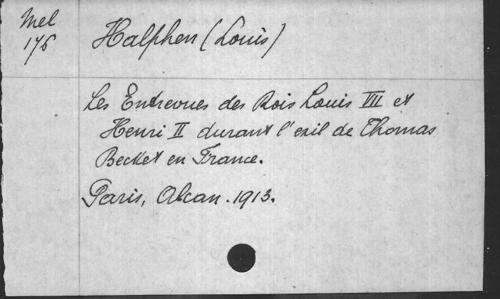 Mel
176
Halphen (Louis)
Les Entrevues des Rois Louis VII et
Henri II durant l'exil de Thomas
Becket en France.
Paris, Alcan. 1913.